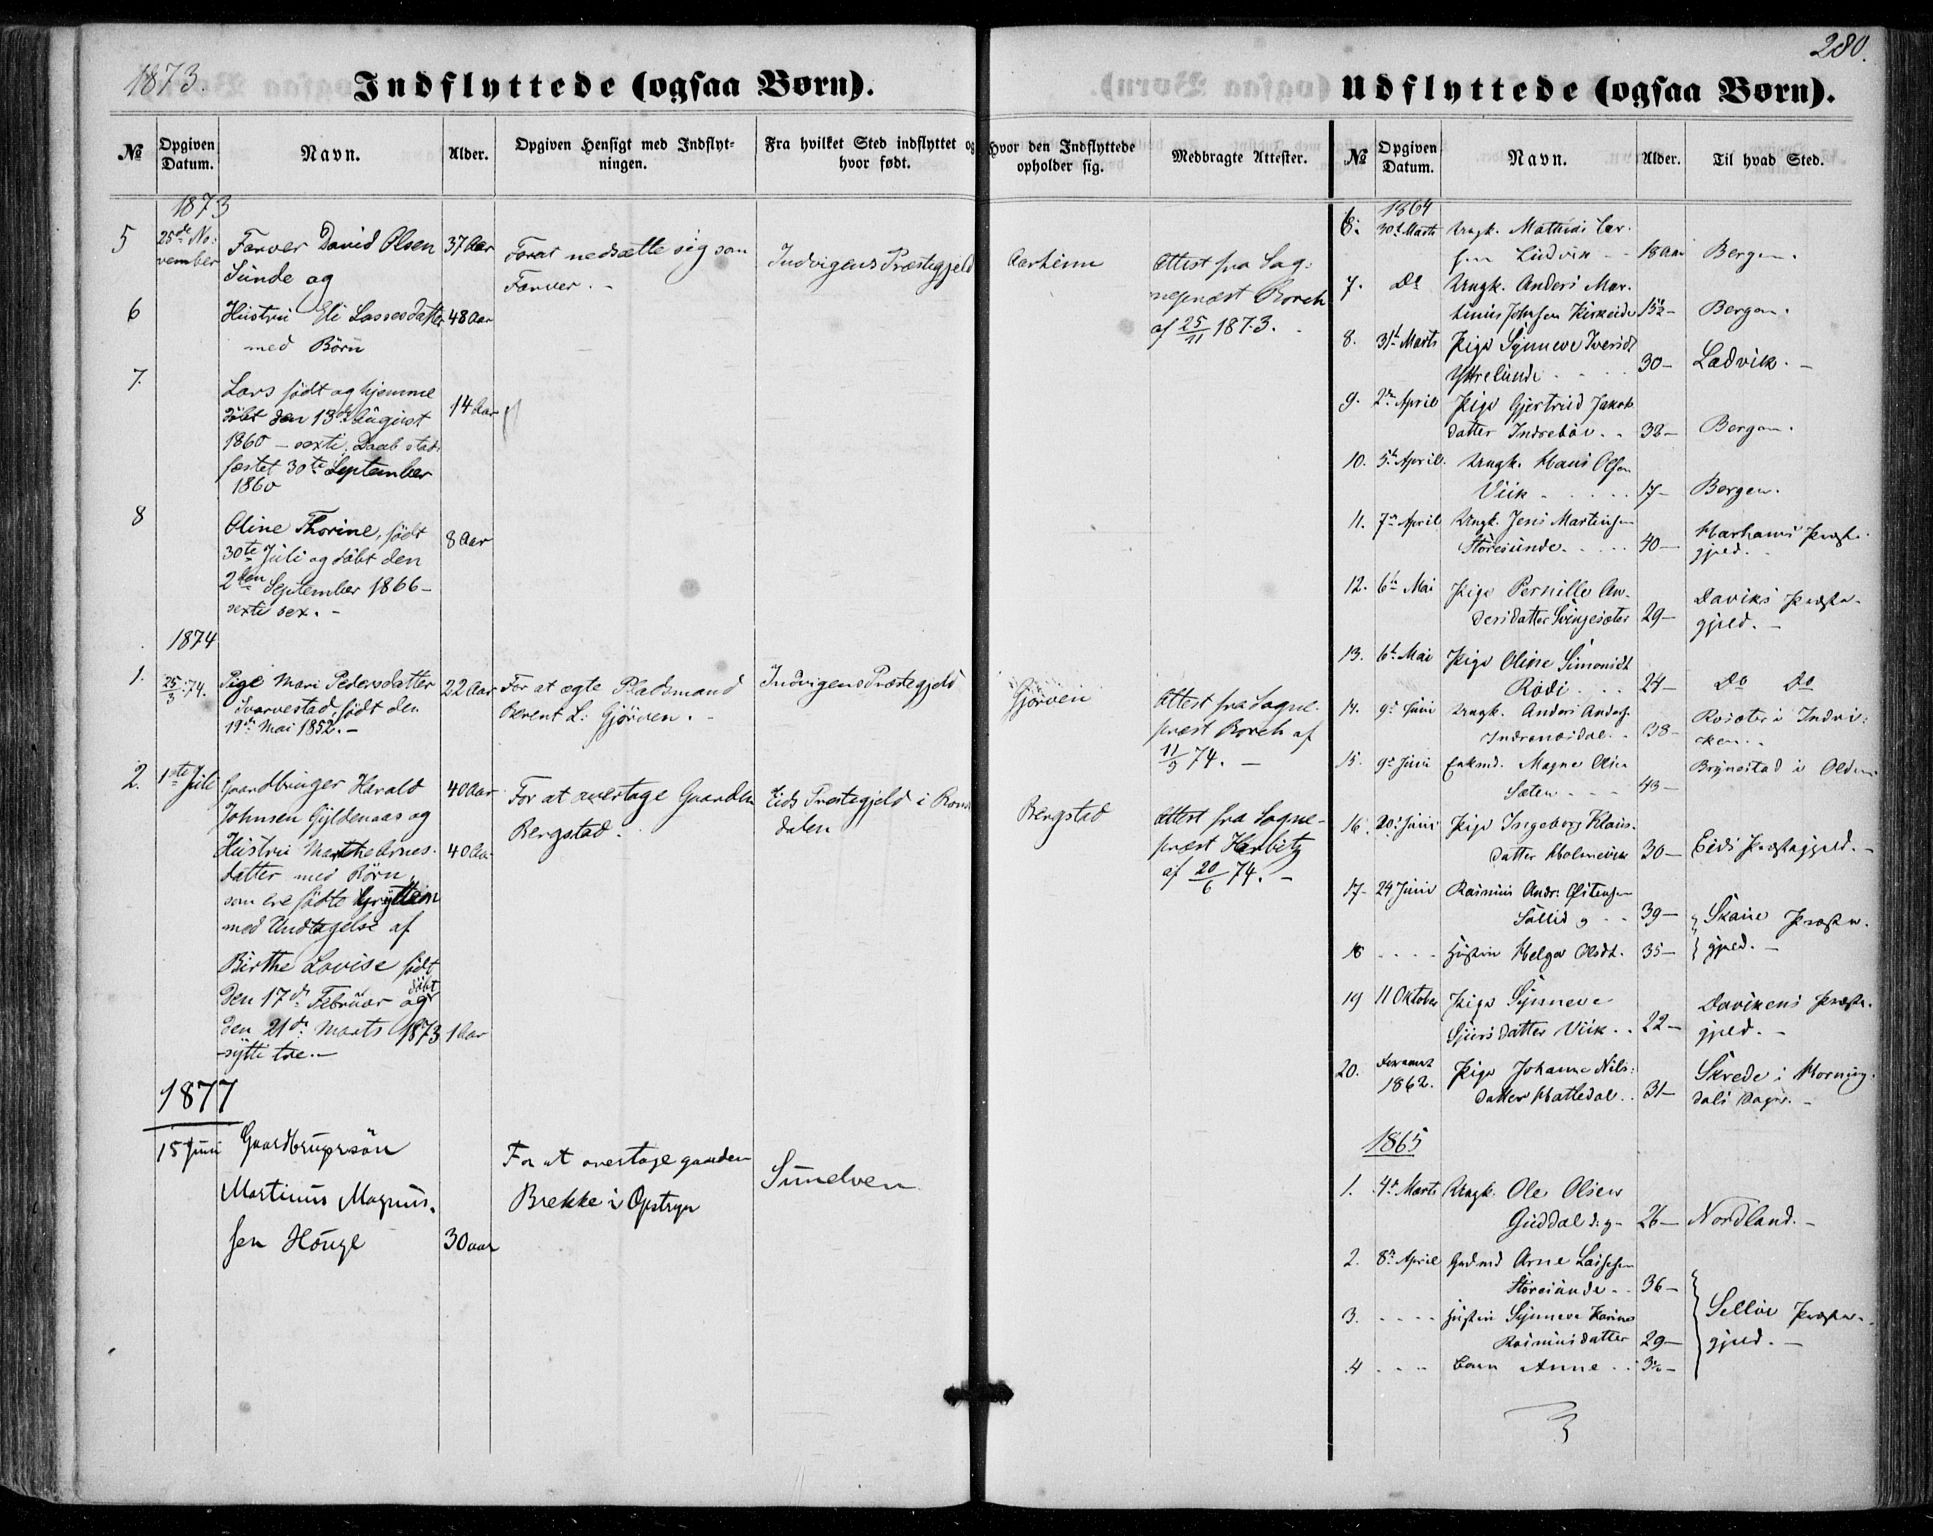 1873.
Indflyttede (ogsaa Børn).
№
Opgiven Datum.
Navn.
Alder.
Opgiven Hensigt med Indflyt-
ningen.
Fra hvilket Sted indflyttet og
hvor født.
Hvor den Indflyttede
opholder sig.
Medbragte Attester.
1873
5
25de No-
vember
Farver David Olsen
Sunde og
37 Aar
Forat nedsætte sig som
Farver. -
Indvigens Præstegjeld
Aarheim
Attest fra Sog-
nepræst Borch
af 25/11 1873.
6
Hustru Eli Lassesdatter
med Børn
48 Aar
7.
Lars født og hjemme
døbt den 13de August
1860 - sexti, Daab stad-
fæstet 30te September
1860
14 Aar
8
Oline Thorine, født
30te Juli og døbt den
2den September 1866 -
sexti sex. -
8 Aar
1874
1.
25/3 74.
Pige Mari Pedersdatter
Tvarvestad, født den
19de Mai 1852. -
22 Aar
For at ægte Pladsmand
Berent L: Gjørven. -
Indvigens Præstegjeld
Gjørven
Attest fra Sogne-
præst Borch af
11/3 74. -
2.
1ste Juli
Gaardbruger Harald
Johnsen Gyldenaas og
40 Aar
For at overtage Gaarden
Bergstad.
Eids Præstegjeld i Roms
dalen
Bergstad
Attest fra Sogne-
præst Herbitz
af 20/6 74. -
Hustru Marthe Arnes-
datter med Børn,
som ere fødte Gryttem
med Undtagelse af
40 Aar
Birthe Lovise født
den 17de Februar og døbt
den 21de Marts 1873
sytti tre. -
1 Aar
1877
15 Juni
Gaardbrugersøn
Martinus Magnus-
sen Houge
30 aar
For at overtage gaarden
Brekke i Opstryn
Sunelven
280.
Udflyttede (ogsaa Børn).
№
Opgiven Datum.
Navn.
Alder.
Til hvad Sted.
1864
6.
30te Marts
Ungk. Mathias Lar-
sen Ludvik - -
18 Aar
Bergen.
7.
Do
Ungk. Anders Mar-
tinus Johnsen Kirkeide
15½ -
Bergen.
8.
31te Marts
Pige Synneve Iversdt
Ytrelunde
30 -
Ladvik. -
9.
2den April
Pige Gjertrud Jakob
datter Indrebøe. -
32 -
Bergen.
10.
5te April.
Ungk. Hans Olsen
Viik
17 -
Bergen.
11.
7de April
Ungk. Jens Martinsen
Storesunde.
40 -
Harhams Præste-
gjeld.
12.
6te Mai
Pige Pernille An-
dersdatter Svingesæter
29 -
Daviks Præste-
gjeld. -
13.
6te Mai
Pige Oline Simonsdt
Rødi
24 -
Do Do
14.
9de Juni
Ungk. Anders Anders.
Indrenæsdal. -
38 -
Rosæter i Indvi-
ken.
15.
9de Juni
Enkmd. Magne Olsen
Sæten
43 -
Brynestad i Olden
16.
20de Juni
Pige Ingeborg Klaus-
datter Holmevik
30 -
Eids Præstegjeld. -
17.
24 Juni
Rasmus Andr: Østensen
Sollid og
39 -
Skaue Præste-
gjeld. -
18
Hustru Helga Olsdt.
35 -
19
11 Oktober
Pige Synneve
Sjursdatter Viik. .
22 -
Davikens Præste-
gjeld. -
20.
1862.
Pige Johanne Nils-
datter Hatledal. .
31 -
Skrede i Horning-
dals Sogn. -
1865
1.
4de Marts
Ungk. Ole Olsen
Guddal
26 -
Nordland. -
2.
8de April
Gadmd Arne Lassesen
Storesunde. .
36 -
Selløe Præste-
gjeld. -
3.
Hustru Synneve Karine
Rasmusdatter
29 -
4
Barn Anne